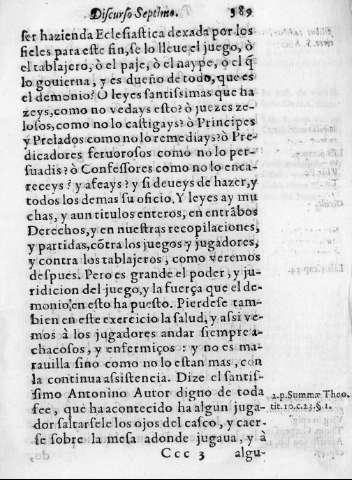 Discurso Septimo. 389
ser hazienda Eclesiastica dexada por los
fieles para este fin, se lo lleue el juego, ò
el tablajero, ò el paje, ò el naype, ò el q̃
lo gouierna, y es dueño de todo, que es
el demonio? O leyes santissimas que ha
zeys, como no vedays esto? ò juezes ze-
losos, como no lo castigays? ò Principes
y Prelados como no lo remediays? ò Pre-
dicadores feruorosos como no lo per-
suadis? ò Confessores como no lo enca-
receys? y afeays? y si deueys de hazer, y
todos los demas su oficio. Y leyes ay mu
chas, y aun titulos enteros, en entrãbos
Derechos, y en nuestras recopilaciones,
y partidas, cõtra los juegos y jugadores,
y contra los tablajeros, como veremos
despues. Pero es grande el poder, y ju-
ridicion del juego, y la fuerça que el de-
monio, en esto ha puesto. Pierdese tam-
bien en este exercicio la salud, y assi ve-
mos à los jugadores andar siempre a-
chacosos, y enfermiços: y no es ma-
rauilla sino como no lo estan mas, con
la continua asistencia. Dize el santis-
simo Antonino Autor digno de toda
fee, que ha acontecido ha algun juga-
dor saltarsele los ojos del casco, y caer-
se sobre la mesa adonde jugaua, y à
2.p. Summæ Theo.
tit. 10.c.23.§.1.
Ccc 3 algu-